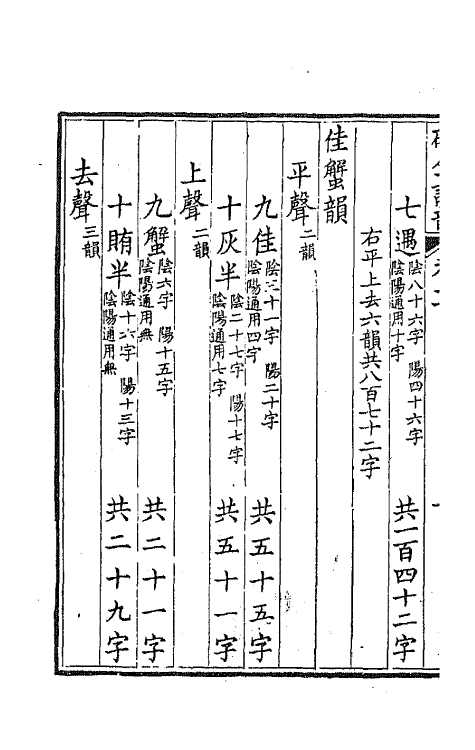 七遇 陰八十六字 陽四十六字 陰陽通用十字 共一百四十二字
右平上去六韻共八百七十二字
佳蟹韻
平聲二韻
九佳 陰三十一字 陽二十字 陰陽通用四字 共五十五字
十灰半 陰二十七字 陽十七字 陰陽通用七字 共五十一字
上聲二韻
九蟹 陰六字 陽十五字 陰陽通用無 共二十一字
十賄半 陰十六字 陽十三字 陰陽通用無 共二十九字
去聲三韻